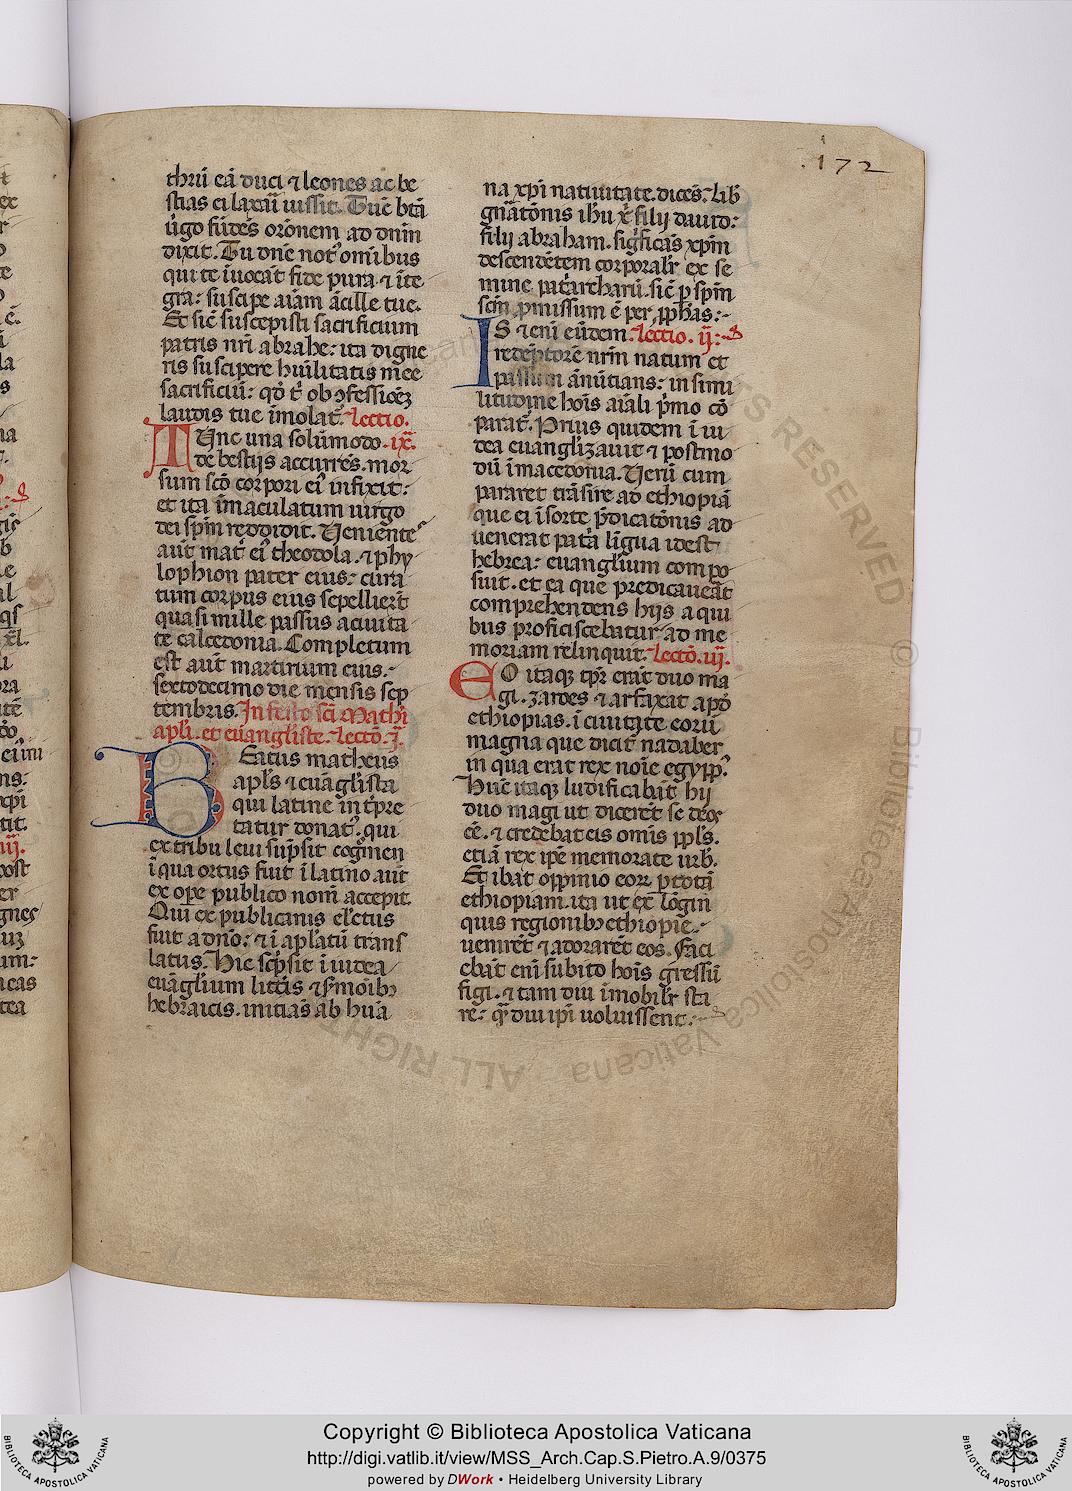 .172
thriũ eã duci ⁊ leones ac be
stias ei laxari iussit. Tũc btã
ugo fũdẽs orõnem ad dnm̃
dixit. Tu dnẽ not᷑ omĩbus
qui te ĩuocãt fide pura ⁊ ĩte
gra: suscipe aĩam ãcille tue.
Et sic̃ suscepisti sacrificium
patris nr̃i abrahe: ita digne
ris suscipere huĩlitatis mee
sacrificiũ: qd̃ t᷑ ob ꝯfessiõeʒ
laudis tue ĩmolat᷑. Lectio.
TUnc una solummodo .ix.
de bestijs accurrẽs. mor
sum scõ corpori eiꝰ infixit:
et ita ĩmaculatum uirgo
dei spm̃ reddidit. Veniente
aut̃ mat᷑ eiꝰ theodola. ⁊ phy
lophion pater eius: cura
tum corpus eius sepelliert̃
quasi mille passus a ciuita
te calcedonia. Completum
est aut̃ martirium eius.
sextodecimo die mensis sep
tembris. In festo sc̃i Mathi
apl̃i. et euangliste. Lectõ. j.
BEatus matheus
apl̃s ⁊ euãglista
qui latine int̃pre
tatur donatꝰ. qui
ex tribu leui sũpsit cogmen
ĩ qua ortus fuit ĩ latino aut̃
ex oꝑe publico nom̃ accepit.
Qui ex publicanis electus
fuit a dño: ⁊ ĩ apl̃atũ trans
latus. Hic scp̃sit ĩ iudea
euãglium litt̃is ⁊ s̃moĩbꝫ
hebraicis. initiãs ab huã
na xp̃i natiuitate. dicẽs. Lib̃
gnãtõnis ihũ x᷑ filij dauid:
filij abraham. sigficãs xp̃m
descendẽtem corporalr̃ ex se
mine pat᷑archarũ. sic̃ ꝑ spm̃
scm̃ ꝓmissum ẽ per ꝓphas:
IS ⁊ eni eũdem Lectio. ij:
redẽptorẽ nrm̃ natum et
passum ãnũtians: in simi
litudine hoĩs aĩali pm̃o cõ
parat᷑. Prius quidem ĩ iu
dea euanglizauit ⁊ postmo
dũ ĩ macedonia. Verũ cum
pararet trãsire ad ethiopiã
que ei ĩ sorte p̃dicatõnis ad
uenerat patã lĩgua idest
hebrea: euanglium compo
suit. et ea que predicaueãt
comprehendens hijs a qui
bus proficiscebatur ad me
moriam relinquit. Lectõ. iij.
EO itaqʒ tp̃r erãt duo ma
gi. zaroes ⁊ arfaxat apd̃
ethiopias. ĩ ciuitate eorũ
magna que dicit᷑ nadaber
in qua erat rex noĩe egypp̃.
Hũc itaqʒ ludificabãt hij
duo magi ut dicerẽt se deos
eẽ. ⁊ credebãt eis om̃s ppl̃s.
etiã rex ip̃e memorate urb̃.
Et ibat oppinio eoꝝ ꝑ totã
ethiopiam. ita ut ex lõgin
quis regionibꝫ ethiopie
uenirẽt ⁊ adorarẽt eos. Faci
ebãt eni subito hoĩs gressũ
figi. ⁊ tam diu ĩmobilr̃ sta
re: qᷓ diu ip̃i uoluissent.
© Biblioteca Apostolica Vaticana
ALL RIGHTS RESERVED
Copyright © Biblioteca Apostolica Vaticana
http://digi.vatlib.it/view/MSS_Arch.Cap.S.Pietro.A.9/0375
powered by DWork • Heidelberg University Library
BIBLIOTECA APOSTOLICA VATICANA
BIBLIOTECA APOSTOLICA VATICANA